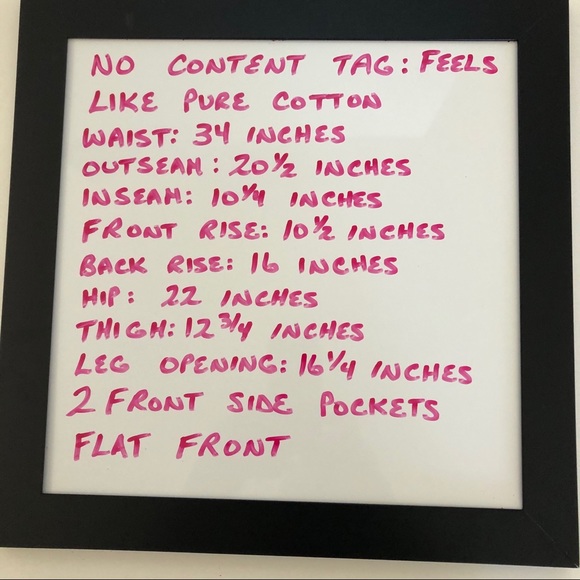 NO CONTENT TAG: FEELS
LIKE PURE COTTON
WAIST: 34 INCHES
OUTSEAM: 20 1/2 INCHES
INSEAM: 10 1/4 INCHES
FRONT RISE: 10 1/2 INCHES
BACK RISE: 16 INCHES
HIP: 22 INCHES
THIGH: 12 3/4 INCHES
LEG OPENING: 16 1/4 INCHES
2 FRONT SIDE POCKETS
FLAT FRONT